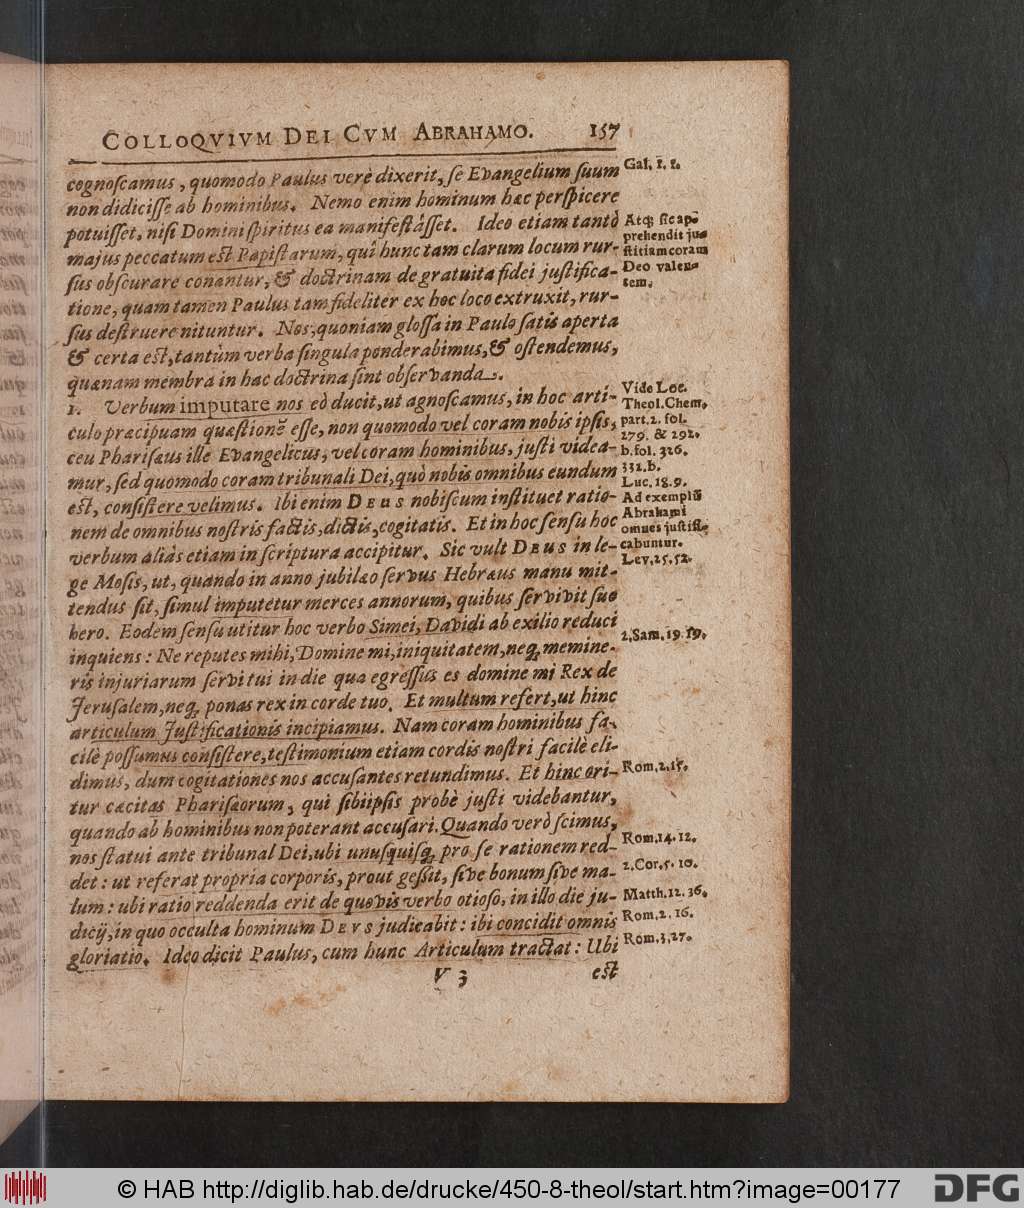 COLLOQVIVM DEI CVM ABRAHAMO. 157
cognoſcamus, quomodo Paulus verè dixerit, ſe Evangelium ſuum
non didiciſſe ab hominibus. Nemo enim hominum hæc perſpicere
potuiſſet, niſi Domini ſpiritus ea manifeſtâſſet. Ideo etiam tantò
majus peccatum eſt Papiſtarum, quî hunc tam clarum locum rur-
ſus obſcurare conantur, & doctrinam de gratuita fidei juſtifica-
tione, quam tamen Paulus tam fideliter ex hoc loco extruxit, rur-
ſus deſtruere nituntur. Nos, quoniam gloſſa in Paulo ſatis aperta
& certa eſt, tantùm verba ſingula ponderabimus, & oſtendemus,
quænam membra in hac doctrina ſint obſervanda.
1. Verbum imputare nos eò ducit, ut agnoſcamus, in hoc arti-
culo præcipuam quæſtionẽ eſſe, non quomodo vel coram nobis ipſis,
ceu Phariſæus ille Evangelicus, vel coram hominibus, juſti videa-
mur, ſed quomodo coram tribunali Dei, quò nobis omnibus eundum
eſt, conſiſtere velimus. Ibi enim DEUS nobiſcum inſtituet ratio-
nem de omnibus noſtris factis, dictis, cogitatis. Et in hoc ſenſu hoc
verbum aliàs etiam in ſcriptura accipitur. Sic vult DEUS in le-
ge Moſis, ut, quando in anno jubilæo ſervus Hebræus manu mit-
tendus ſit, ſimul imputetur merces annorum, quibus ſervivit ſuo
hero. Eodem ſenſu utitur hoc verbo Simei, Davidi ab exilio reduci
inquiens: Ne reputes mihi, Domine mi, iniquitatem, neq; memine-
ris injuriarum ſervi tui in die qua egreſſus es domine mi Rex de
Jeruſalem, neq; ponas rex in corde tuo. Et multum refert, ut hinc
articulum Juſtificationis incipiamus. Nam coram hominibus fa-
cilè poſſumus conſiſtere, teſtimonium etiam cordis noſtri facilè eli-
dimus, dum cogitationes nos accuſantes retundimus. Et hinc ori-
tur cæcitas Phariſæorum, qui ſibiipſis probè juſti videbantur,
quando ab hominibus non poterant accuſari. Quando verò ſcimus,
nos ſtatui ante tribunal Dei, ubi unuſquiſq; pro ſe rationem red-
det: ut referat propria corporis, prout geſſit, ſive bonum ſive ma-
lum: ubi ratio reddenda erit de quovis verbo otioſo, in illo die ju-
dicij, in quo occulta hominum DEVS judicabit: ibi concidit omnis
gloriatio. Ideo dicit Paulus, cum hunc Articulum tractat: Ubi
V 3 eſt
Gal. 1. 1.
Atq; ſic ap-
prehendit ju-
ſtitiam coram
Deo valen-
tem.
Vide Loc.
Theol. Chem.
part. 2. fol.
279. & 292.
b. fol. 326.
332. b.
Luc. 18. 9.
Ad exemplũ
Abrahami
omnes juſtifi-
cabuntur.
Lev. 25. 52.
2. Sam. 19. 19.
Rom. 2. 15.
Rom. 14. 12.
2. Cor. 5. 10.
Matth. 12. 36.
Rom. 2. 16.
Rom. 3. 27.
© HAB http://diglib.hab.de/drucke/450-8-theol/start.htm?image=00177
DFG